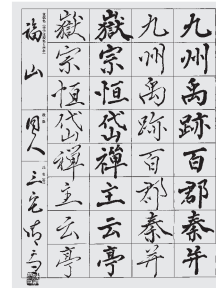 九州禹跡百郡秦并
九州禹跡百郡秦并
嶽宗恒岱禪主云亭
嶽宗恒岱禪主云亭
福山 同人 三宅